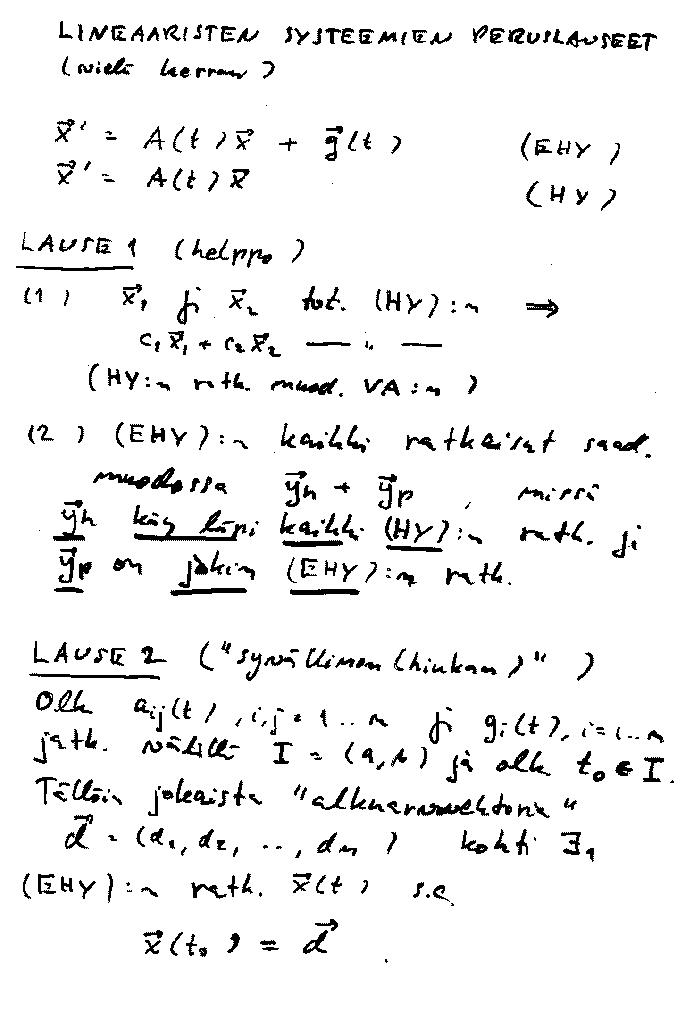 LINEAARISTEN SYSTEEMIEN PERUSLAUSEET
(vielä kerran)
x⃗' = A(t)x⃗ + g⃗(t) (EHY)
x⃗' = A(t)x⃗ (HY)
LAUSE 1 (helppo)
(1) x⃗₁ ja x⃗₂ tot. (HY):n ⇒
c₁x⃗₁ + c₂x⃗₂ — " —
(HY:n ratk. muod. VA:n)
(2) (EHY):n kaikki ratkaisut saad.
muodossa y⃗h + y⃗p, missä
y⃗h käy läpi kaikki (HY):n ratk. ja
y⃗p on jokin (EHY):n ratk.
LAUSE 2 ("syvällinen (hiukan)")
Olk. aij(t), i,j = 1...n ja gi(t), i=1...n
jatk. välillä I = (a,b) ja olk. t₀ ∈ I.
Tällöin jokaista "alkuarvovektoria"
d⃗ = (d₁, d₂, ..., dn) kohti ∃₁
(EHY):n ratk. x⃗(t) s.e.
x⃗(t₀) = d⃗.